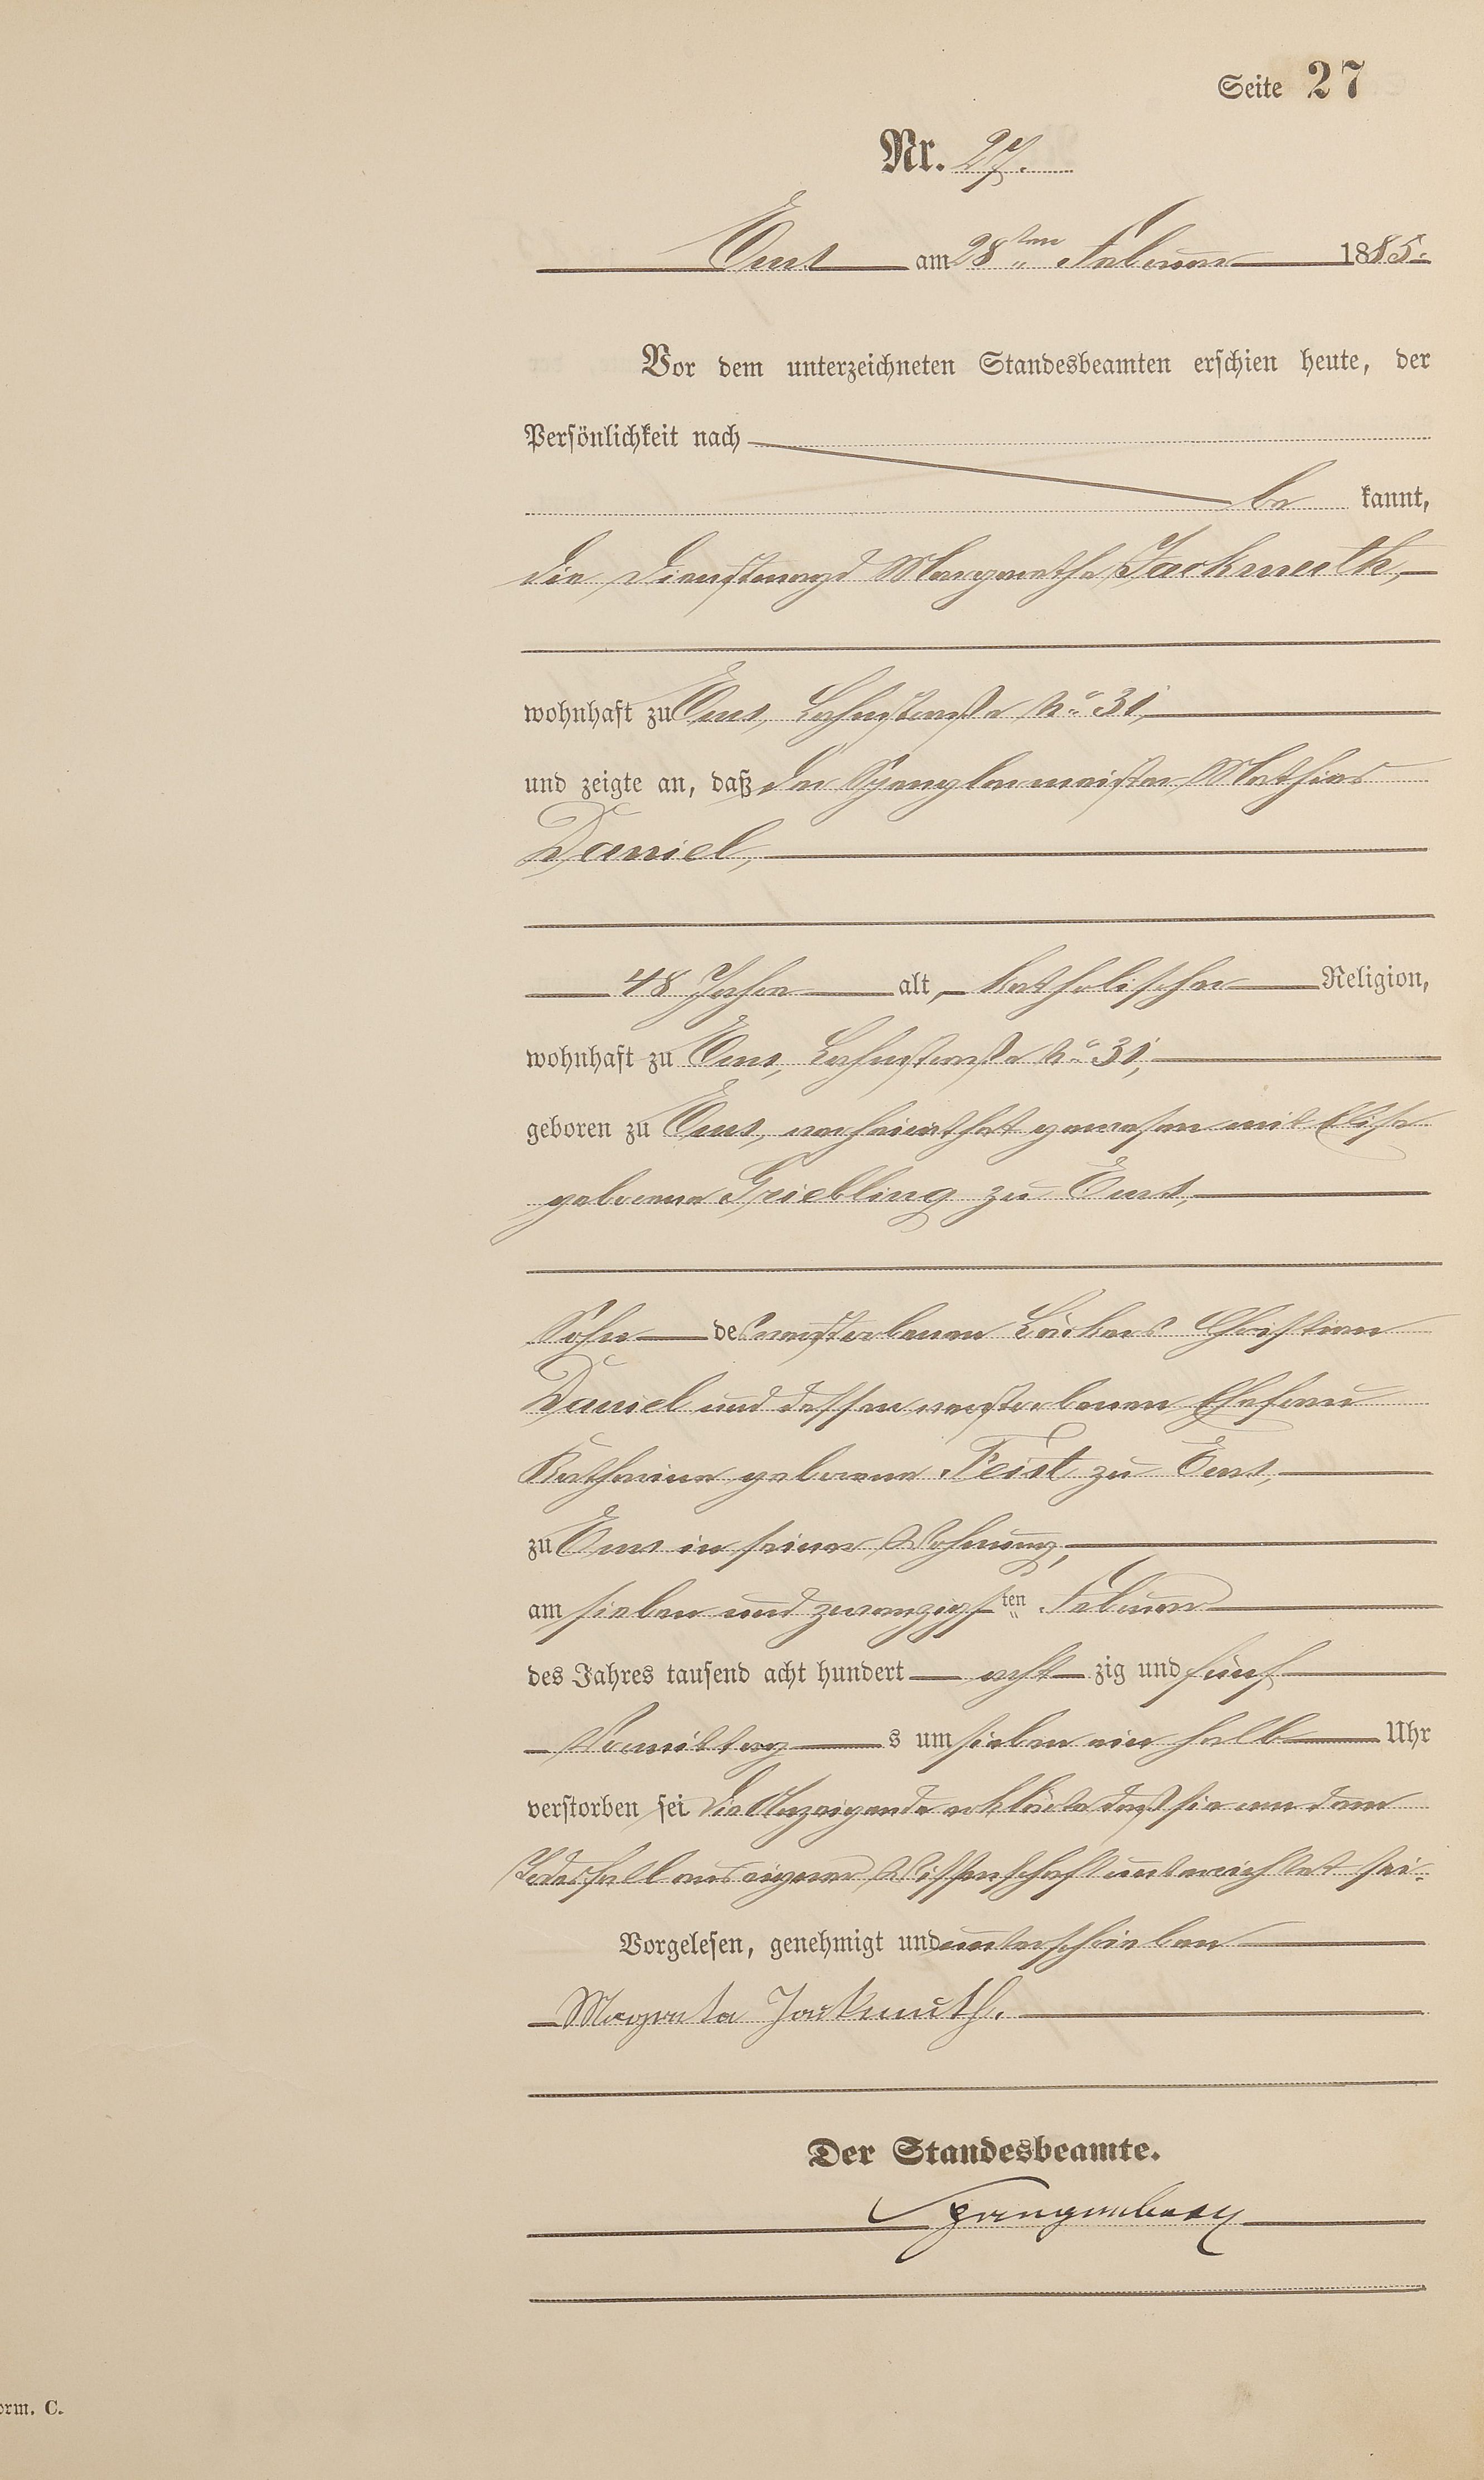 Seite 27
Nr. 27.
Ems am 28ten Februar 1885.
Vor dem unterzeichneten Standesbeamten erschien heute, der
Persönlichkeit nach
be kannt,
die Dienstmagd Margarethe Jackmuth,
wohnhaft zu Ems, Lahnstraße No 31,
und zeigte an, daß der Spenglermeister Mathias
Daniel,
48 Jahre alt, katholischer Religion,
wohnhaft zu Ems, Lahnstraße No 31,
geboren zu Ems, verheirathet gewesen mit Elise
geborene Griebling zu Ems,
Sohn des verstorbenen Bäckers Christian
Daniel und dessen verstorbenen Ehefrau
Katharina geborene Feist zu Ems,
zu Ems in seiner Wohnung,
am sieben und zwanzigsten Februar
des Jahres tausend acht hundert acht zig und fünf
Vormittag s um sieben ein halb Uhr
verstorben sei Die Anzeigende erklärte daß sie von dem
Todesfall aus eigener Wissenschaft unterrichtet sei.
Vorgelesen, genehmigt und unterschrieben
Margreta Jackmuth.
Der Standesbeamte.
Spangenberg
orm. C.